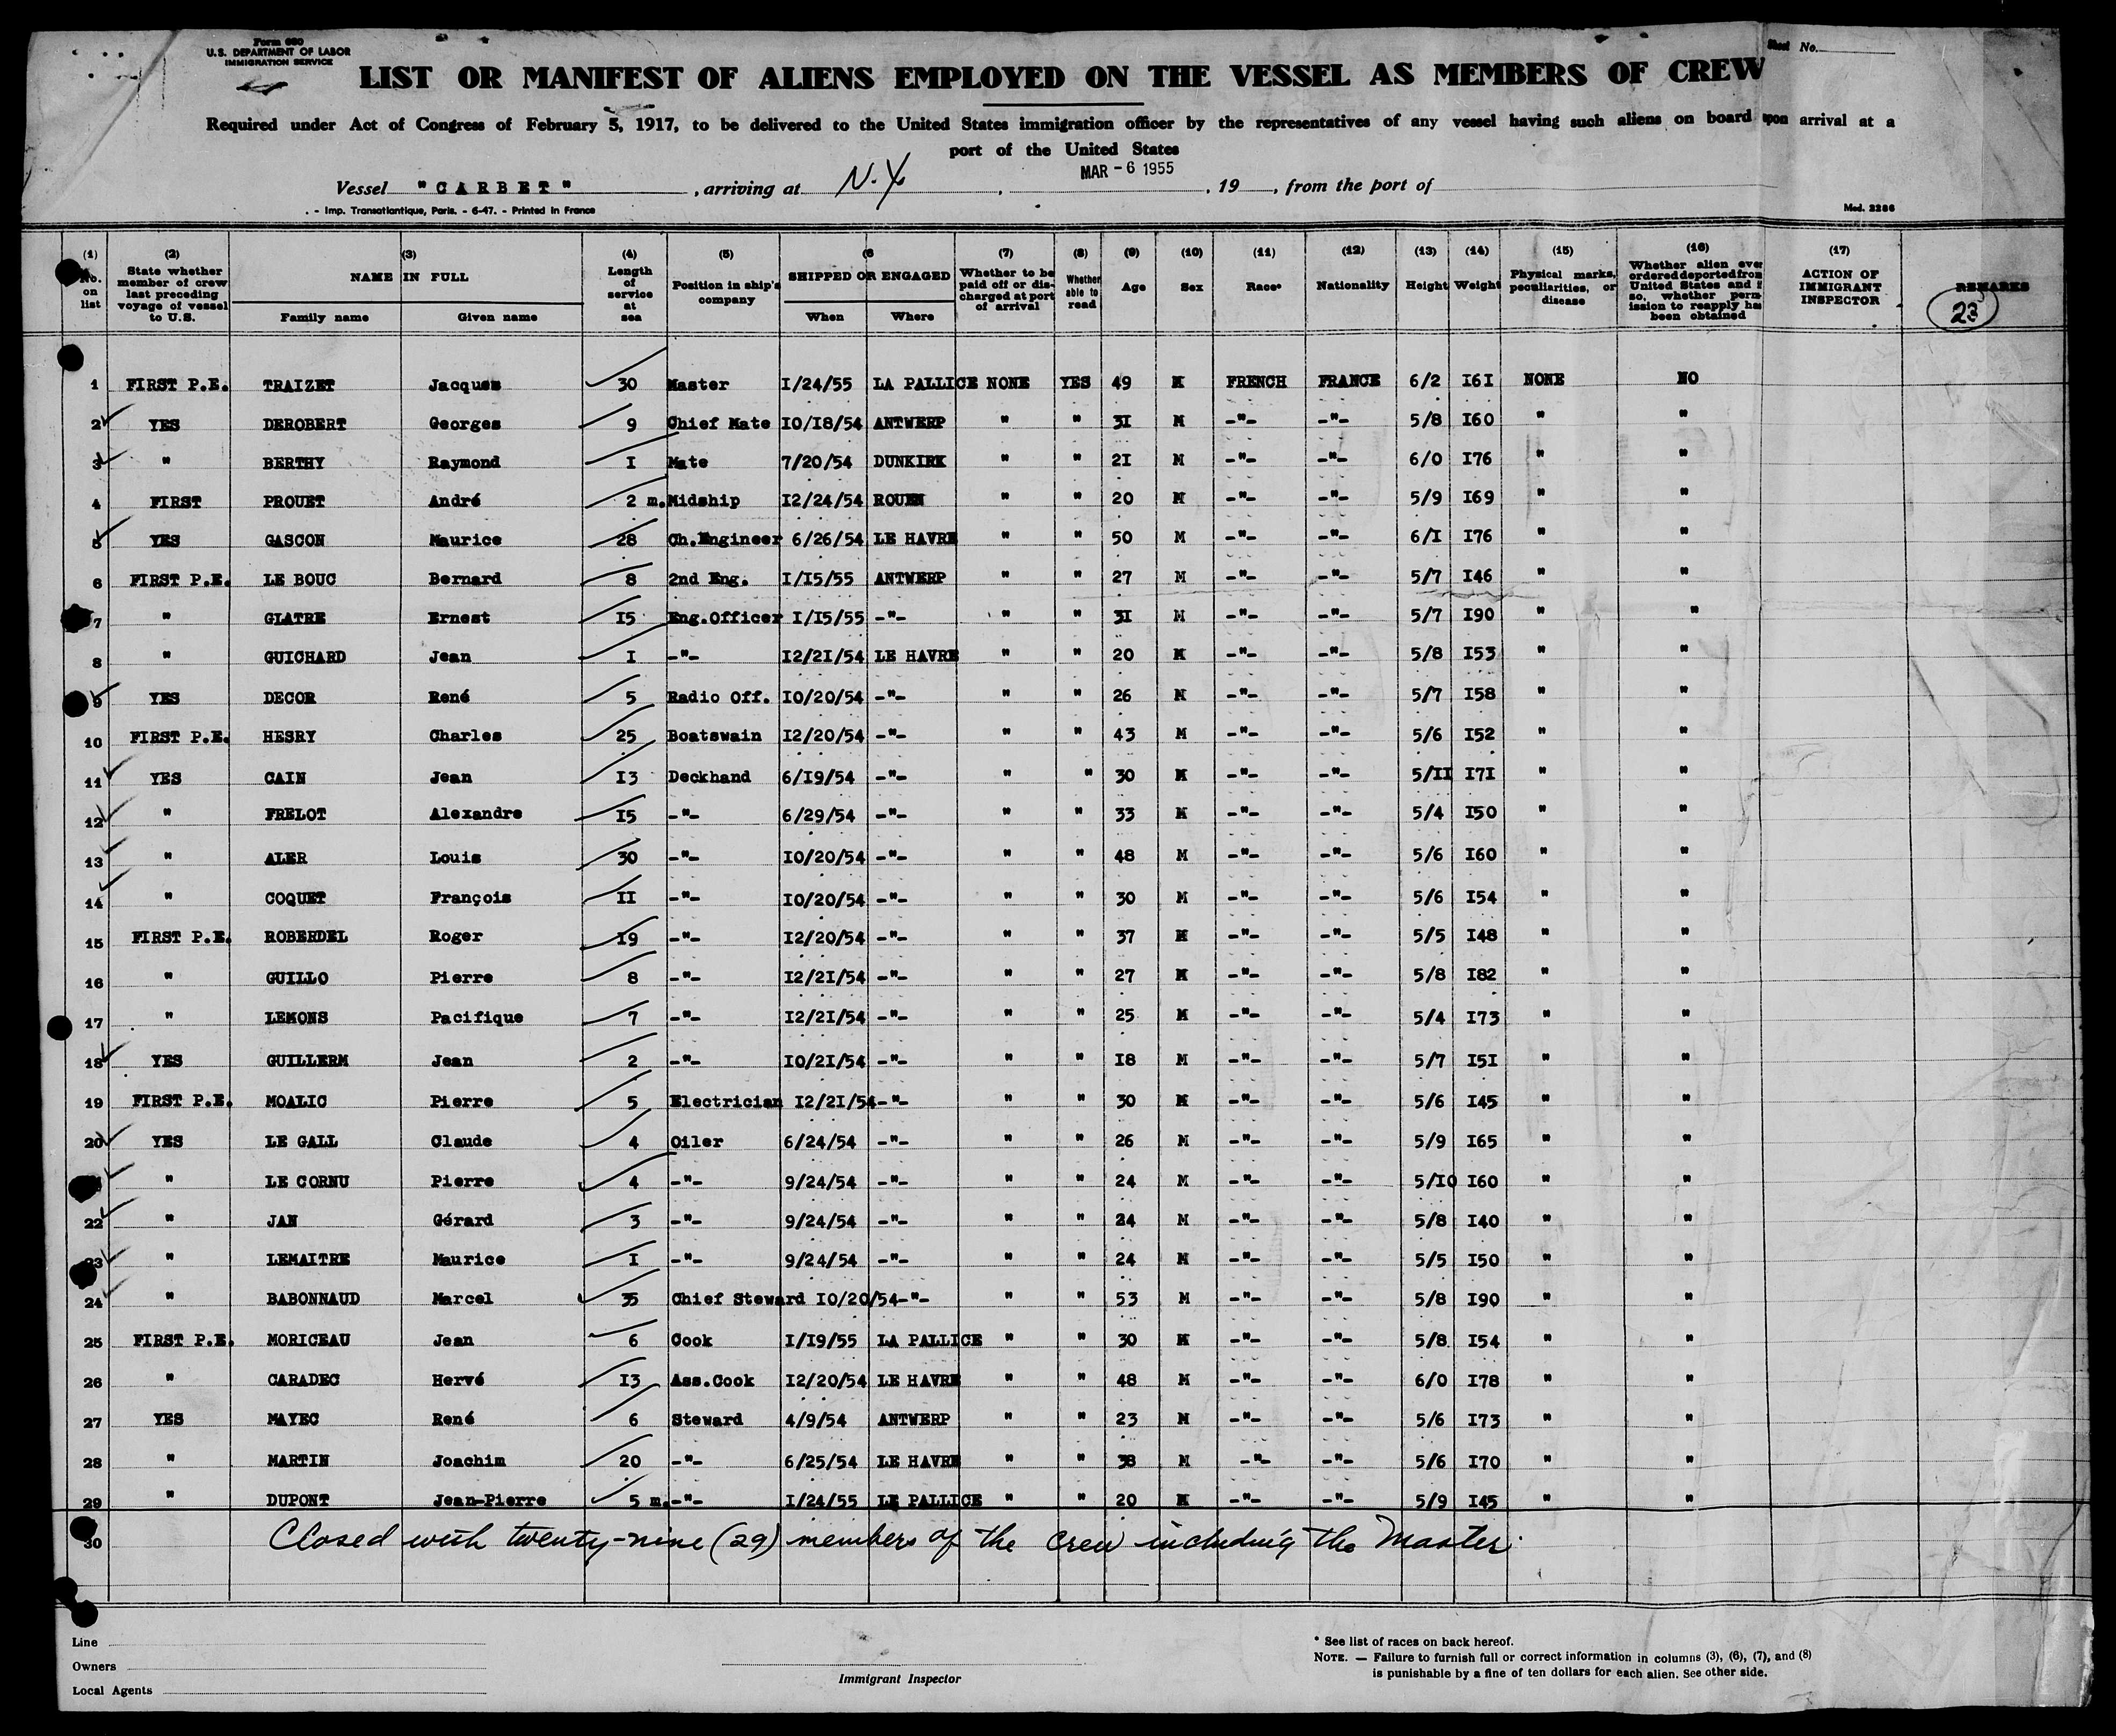 Form 680
U.S. DEPARTMENT OF LABOR
IMMIGRATION SERVICE
Sheet No.
LIST OR MANIFEST OF ALIENS EMPLOYED ON THE VESSEL AS MEMBERS OF CREW
Required under Act of Congress of February 5, 1917, to be delivered to the United States immigration officer by the representatives of any vessel having such aliens on board upon arrival at a
port of the United States
Vessel "CARBET", arriving at N.Y., MAR - 6 1955, 19, from the port of
. - Imp. Transatlantique, Paris. - 6-47. - Printed in France
Mod. 2286
(1) No. on list (2) State whether member of crew last preceding voyage of vessel to U.S. (3) NAME IN FULL Family name Given name (4) Length of service at sea (5) Position in ship's company 6 SHIPPED OR ENGAGED When Where (7) Whether to be paid off or discharged at port of arrival (8) Whether able to read (9) Age (10) Sex (11) Race* (12) Nationality (13) Height (14) Weight (15) Physical marks, peculiarities, or disease (16) Whether alien ever ordered deported from United States and if so, whether permission to reapply has been obtained (17) ACTION OF IMMIGRANT INSPECTOR REMARKS
23
1 FIRST P.E. TRAIZET Jacques 30 Master I/24/55 LA PALLICE NONE YES 49 M FRENCH FRANCE 6/2 I6I NONE NO
2 YES DEROBERT Georges 9 Chief Mate I0/I8/54 ANTWERP " " 3I M -"- -"- 5/8 I60 " "
3 " BERTHY Raymond I Mate 7/20/54 DUNKIRK " " 2I M -"- -"- 6/0 I76 " "
4 FIRST PROUET André 2 m. Midship I2/24/54 ROUEN " " 20 M -"- -"- 5/9 I69 " "
5 YES GASCON Maurice 28 Ch.Engineer 6/26/54 LE HAVRE " " 50 M -"- -"- 6/I I76 " "
6 FIRST P.E. LE BOUC Bernard 8 2nd Eng. I/I5/55 ANTWERP " " 27 M -"- -"- 5/7 I46 " "
7 " GLATRE Ernest I5 Eng.Officer I/I5/55 -"- " " 3I M -"- -"- 5/7 I90 " "
8 " GUICHARD Jean I -"- I2/2I/54 LE HAVRE " " 20 M -"- -"- 5/8 I53 " "
9 YES DECOR René 5 Radio Off. I0/20/54 -"- " " 26 M -"- -"- 5/7 I58 " "
10 FIRST P.E. HESRY Charles 25 Boatswain I2/20/54 -"- " " 43 M -"- -"- 5/6 I52 " "
11 YES CAIN Jean I3 Deckhand 6/I9/54 -"- " " 30 M -"- -"- 5/II I7I " "
12 " FRELOT Alexandre I5 -"- 6/29/54 -"- " " 33 M -"- -"- 5/4 I50 " "
13 " ALER Louis 30 -"- I0/20/54 -"- " " 48 M -"- -"- 5/6 I60 " "
14 " COQUET François II -"- I0/20/54 -"- " " 30 M -"- -"- 5/6 I54 " "
15 FIRST P.E. ROBERDEL Roger I9 -"- I2/20/54 -"- " " 37 M -"- -"- 5/5 I48 " "
16 " GUILLO Pierre 8 -"- I2/2I/54 -"- " " 27 M -"- -"- 5/8 I82 " "
17 " LEMONS Pacifique 7 -"- I2/2I/54 -"- " " 25 M -"- -"- 5/4 I73 " "
18 YES GUILLERM Jean 2 -"- I0/2I/54 -"- " " I8 M -"- -"- 5/7 I5I " "
19 FIRST P.E. MOALIC Pierre 5 Electrician I2/2I/54 -"- " " 30 M -"- -"- 5/6 I45 " "
20 YES LE GALL Claude 4 Oiler 6/24/54 -"- " " 26 M -"- -"- 5/9 I65 " "
" LE CORNU Pierre 4 -"- 9/24/54 -"- " " 24 M -"- -"- 5/I0 I60 " "
22 " JAN Gérard 3 -"- 9/24/54 -"- " " 24 M -"- -"- 5/8 I40 " "
23 " LEMAITRE Maurice I -"- 9/24/54 -"- " " 24 M -"- -"- 5/5 I50 " "
24 " BABONNAUD Marcel 35 Chief Steward I0/20/54 -"- " " 53 M -"- -"- 5/8 I90 " "
25 FIRST P.E. MORICEAU Jean 6 Cook I/I9/55 LA PALLICE " " 30 M -"- -"- 5/8 I54 " "
26 " CARADEC Hervé I3 Ass.Cook I2/20/54 LE HAVRE " " 48 M -"- -"- 6/0 I78 " "
27 YES MAYEC René 6 Steward 4/9/54 ANTWERP " " 23 M -"- -"- 5/6 I73 " "
28 " MARTIN Joachim 20 -"- 6/25/54 LE HAVRE " " 38 M -"- -"- 5/6 I70 " "
29 " DUPONT Jean-Pierre 5 m. -"- I/24/55 LE PALLICE " " 20 M -"- -"- 5/9 I45 " "
30 Closed with twenty-nine (29) members of the crew including the Master.
Line
Owners
Local Agents
Immigrant Inspector
* See list of races on back hereof.
NOTE. — Failure to furnish full or correct information in columns (3), (6), (7), and (8)
is punishable by a fine of ten dollars for each alien. See other side.